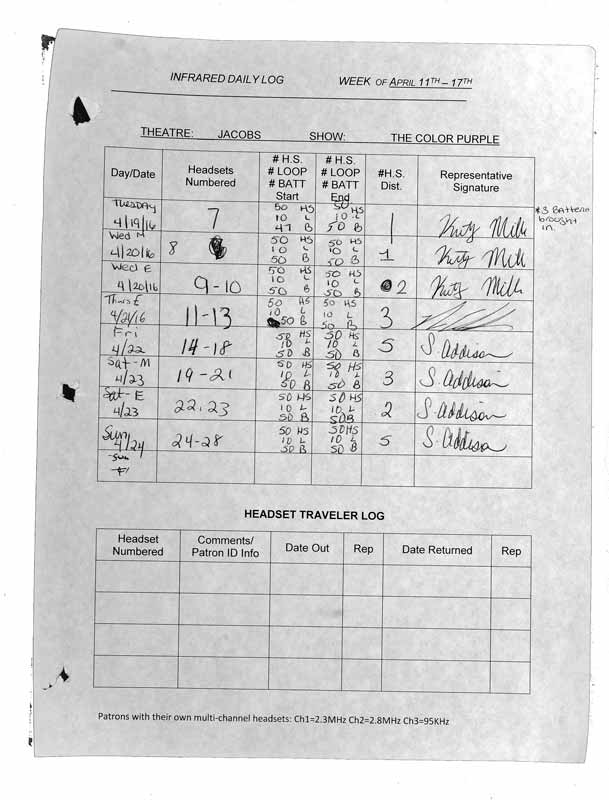 INFRARED DAILY LOG WEEK OF APRIL 11TH – 17TH
THEATRE: JACOBS SHOW: THE COLOR PURPLE
Day/Date Headsets Numbered # H.S. # LOOP # BATT Start # H.S. # LOOP # BATT End #H.S. Dist. Representative Signature
TUESDAY 4/19/16 7 50 HS 10 L 47 B 50 HS 10 L 50 B 1
*3 Batteries brought in.
Wed M 4/20/16 8 50 HS 10 L 50 B 50 HS 10 L 50 B 1
Wed E 4/20/16 9-10 50 HS 10 L 50 B 50 HS 10 L 50 B 2
Thurs E 4/21/16 11-13 50 HS 10 L 50 B 50 HS 10 L 50 B 3
Fri 4/22 14-18 50 HS 10 L 50 B 50 HS 10 L 50 B 5 S. Addison
Sat-M 4/23 19-21 50 HS 10 L 50 B 50 HS 10 L 50 B 3 S. Addison
Sat-E 4/23 22,23 50 HS 10 L 50 B 50 HS 10 L 50 B 2 S. Addison
Sun 4/24 24-28 50 HS 10 L 50 B 50 HS 10 L 50 B 5 S. Addison
Sun
HEADSET TRAVELER LOG
Headset Numbered Comments/ Patron ID Info Date Out Rep Date Returned Rep
Patrons with their own multi-channel headsets: Ch1=2.3MHz Ch2=2.8MHz Ch3=95KHz